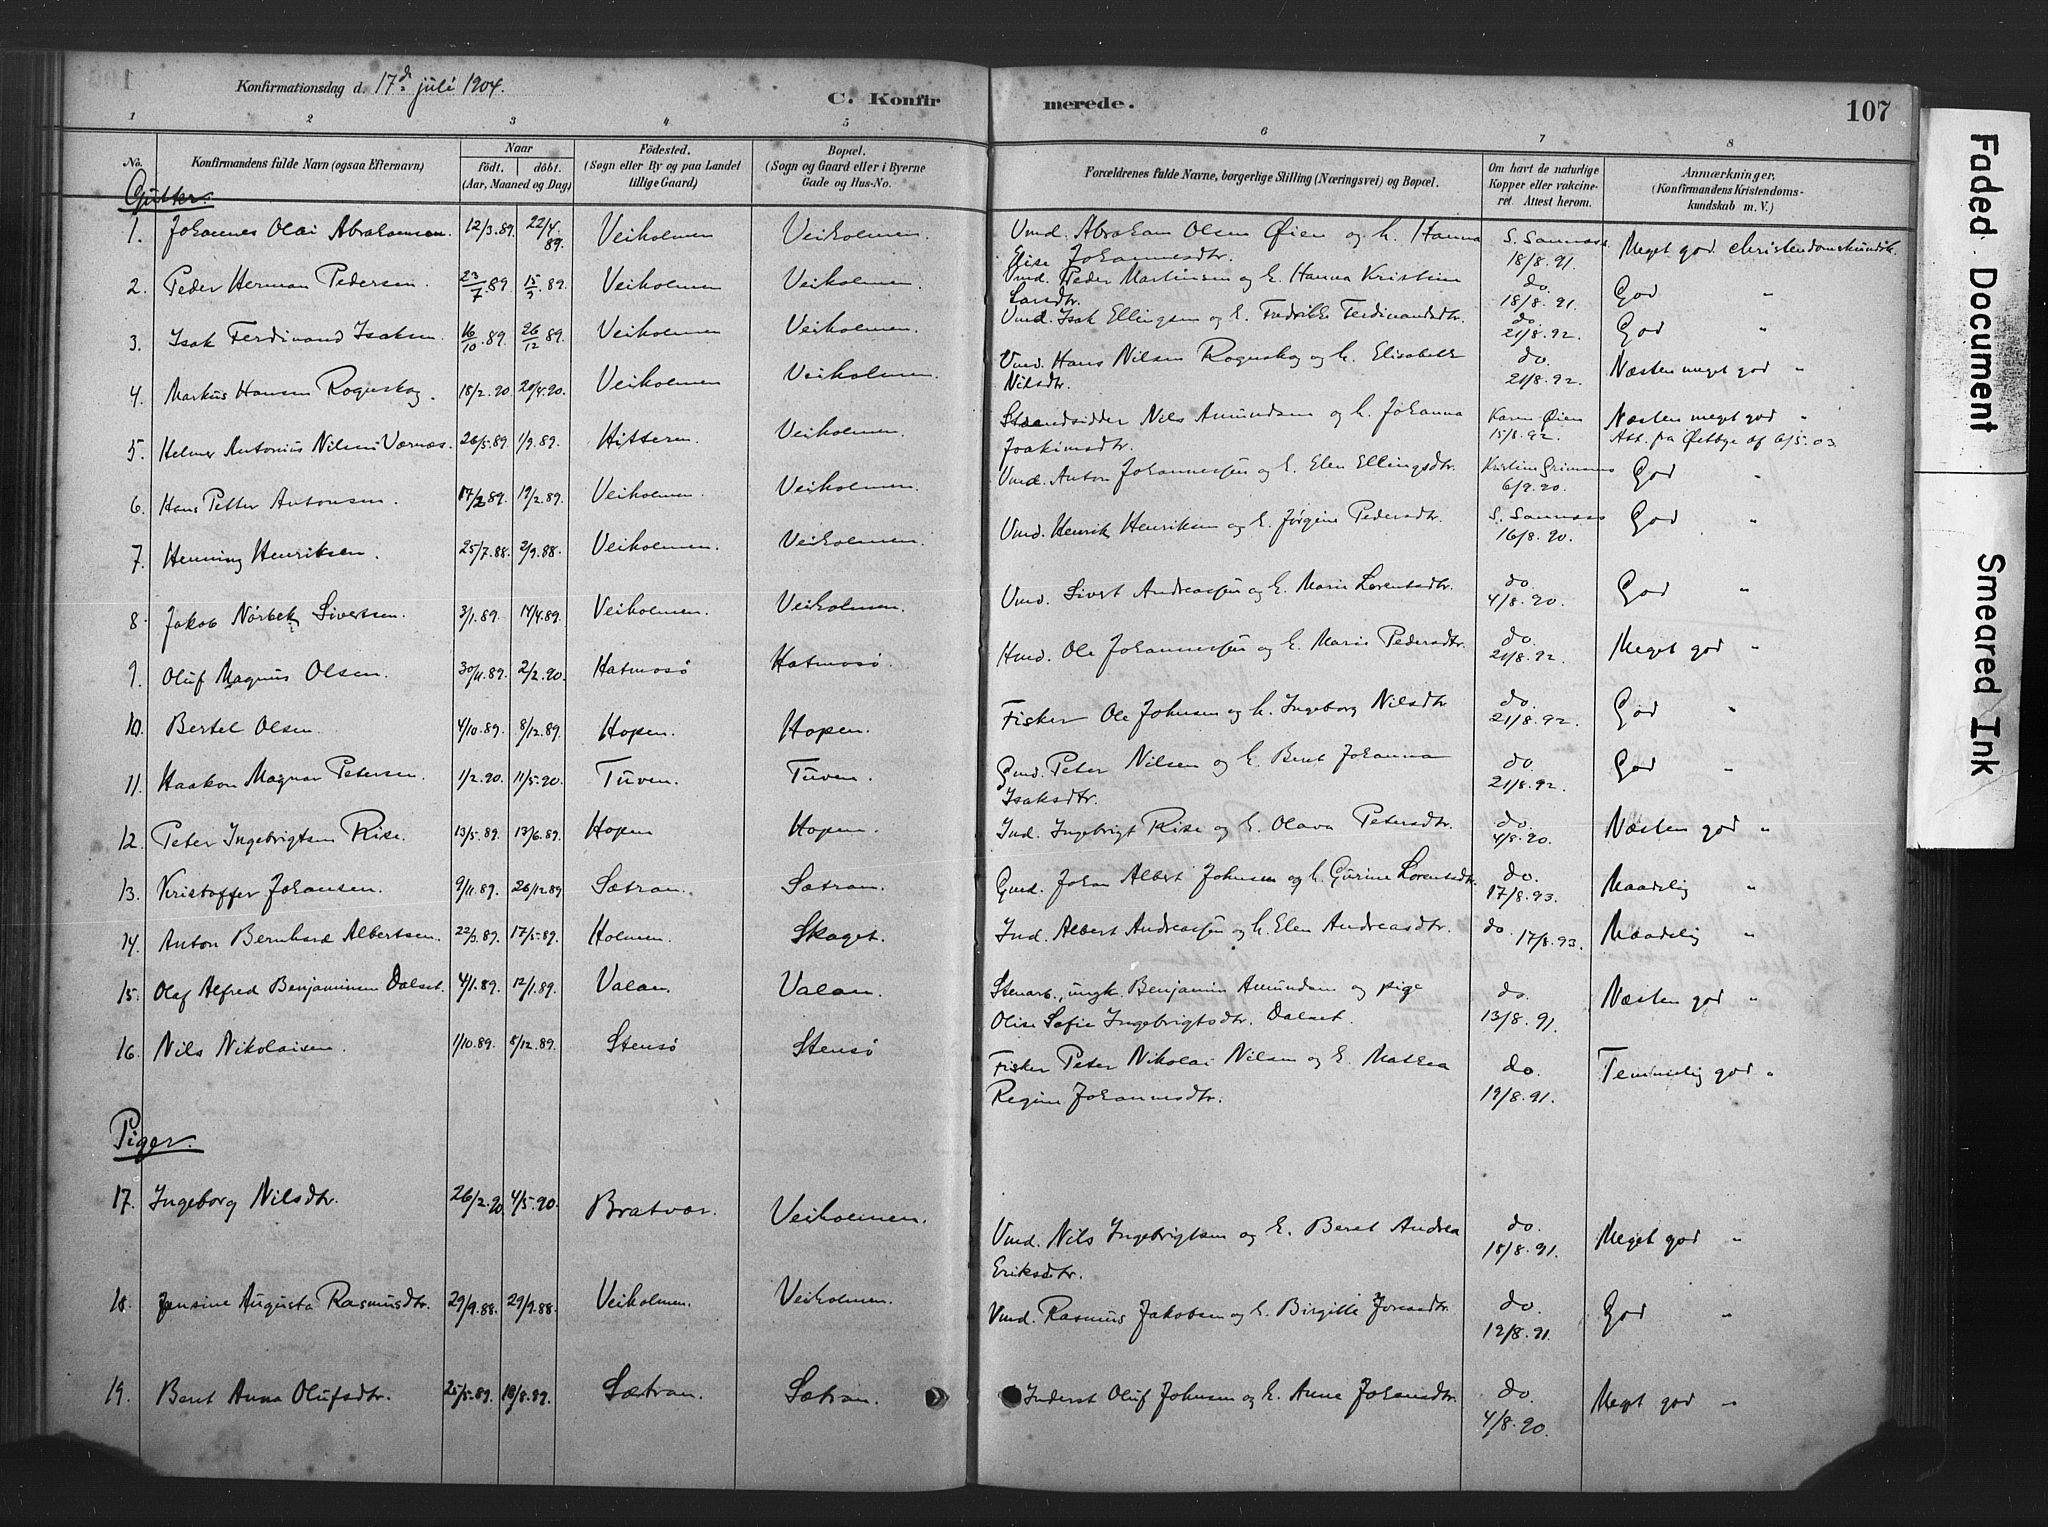 Konfirmationsdag d. 17de juli 1904.
C. Konfirmerede.
107
1 2 3 4 5 6 7 8
No.
Konfirmandens fulde Navn (ogsaa Efternavn)
Naar
födt. döbt.
(Aar, Maaned og Dag)
Födested.
(Sogn eller By og paa Landet
tillige Gaard)
Bopæl.
(Sogn og Gaard eller i Byerne
Gade og Hus-No.
Forældrenes fulde Navne, borgerlige Stilling (Næringsvei) og Bopæl.
Om havt de naturlige
Kopper eller vakcine-
ret. Attest herom.
Anmærkninger.
(Konfirmandens Kristendoms-
kundskab m. V.)
Gutter.
1. Johannes Olai Abrahamsen. 12/3.89. 22/4.89. Veiholmen Veiholmen. Vmd. Abraham Olsen Øien og h. Hanna S. Sannæs Meget god christendomskundsk.
Elise Johannesdtr. 18/8.91.
2. Peder Herman Pedersen. 23/7.89 15/9.89. Veiholmen Veiholmen. Vmd. Peder Martinsen og h. Hanna Kristine do God "
Larsdtr. 18/8.91.
3. Isak Ferdinand Isaksen. 16/10.89. 26/12.89. Veiholmen Veiholmen. Vmd. Isak Ellingsen og h. Fredrikke Ferdinandsdtr. do God "
21/8.92.
4. Markus Hansen Roguskog. 18/2.90 20/4.90. Veiholmen Veiholmen. Vmd. Hans Nilsen Roguskog og h. Elisabeth do Næsten meget god "
Nilsdtr. 21/8.92.
5. Helmer Antonius Nilsen Værnæs. 26/5.89. 1/9.89. Hitteren. Veiholmen. Strandsidder Nils Amundsen og h. Johanna Karen Øien Næsten meget god "
Joakimsdtr. 15/8.92. Att. fra Østbye af 6/5.03.
6. Hans Petter Antonsen. 17/2.89. 19/2.89. Veiholmen. Veiholmen. Vmd. Anton Johannessen og h. Elen Ellingsdtr. Kristine Grimsnes God "
6/9.90.
7. Henning Henriksen. 25/7.88. 2/9.88. Veiholmen. Veiholmen. Vmd. Henrik Henriksen og h. Jørgine Pedersdtr. S. Sannæs God "
16/8.90.
8. Jakob Nørbek Sivertsen. 3/1.89. 17/4.89. Veiholmen. Veiholmen. Vmd. Sivert Andreassen og h. Marie Lorentsdtr. do God "
4/8.90.
9. Oluf Magnus Olsen. 30/11.89. 2/2.90. Hatmosø Hatmosø. Hmd. Ole Johannessen og h. Marie Pedersdtr. do. Meget god "
21/8.92.
10. Bertel Olsen. 4/10.89. 8/12.89. Hopen. Hopen. Fisker Ole Johnsen og h. Ingeborg Nilsdtr do. God "
21/8.92.
11. Haakon Magnar Petersen. 1/2.90. 11/5.90. Tuven. Tuven. Gmd. Peter Nilsen og h. Beret Johanna do. God "
Isaksdtr. 21/8.92.
12. Peter Ingebrigtsen Rise. 13/5.89. 13/6.89. Hopen Hopen. Ind. Ingebrigt Rise og h. Olava Petersdtr. do. Næsten god "
4/8.90.
13. Kristoffer Johansen. 9/11.89. 26/12.89 Sætran. Sætran. Gmd. Johan Albert Johnsen og h. Gurine Lorentsdtr. do. Maadelig "
17/8.93.
14. Anton Bernhard Albertsen. 22/3.89. 17/5.89. Holmen. Skaget. Ind. Albert Andreassen og h. Elen Andreasdtr. do. 17/8.93. Maadelig "
15. Olaf Alfred Benjaminsen Dalset. 4/1.89. 12/1.89. Valan. Valan. Stenarb., ungk. Benjamin Amundsen og pige do. Næsten god "
Olise Sofie Ingebrigtsdtr. Dalset. 13/8.91.
16. Nils Nikolaisen. 1/10.89. 8/12.89. Stensø Stensø Fisker Peter Nikolai Nilsen og h. Mathea do. Temmelig god "
Regine Johannesdtr. 19/8.91.
Piger.
17. Ingeborg Nilsdtr. 26/2.90 4/5.90. Bratvær. Veiholmen. Vmd. Nils Ingebrigtsen og h. Beret Andrea do. Meget god "
Eriksdtr. 18/8.91.
18. Jensine Augusta Rasmusdtr. 29/9.88. 29/9.88. Veiholmen. Veiholmen. Vmd. Rasmus Jakobsen og h. Birgitte Jonasdtr. do. God "
19/8.91.
19. Beret Anna Olufsdtr. 25/5.89. 18/8.89. Sætran. Sætran. Inderst Oluf Johnsen og h. Anne Johansdtr. do. Meget god "
4/8.90.
Faded Document
Smeared Ink